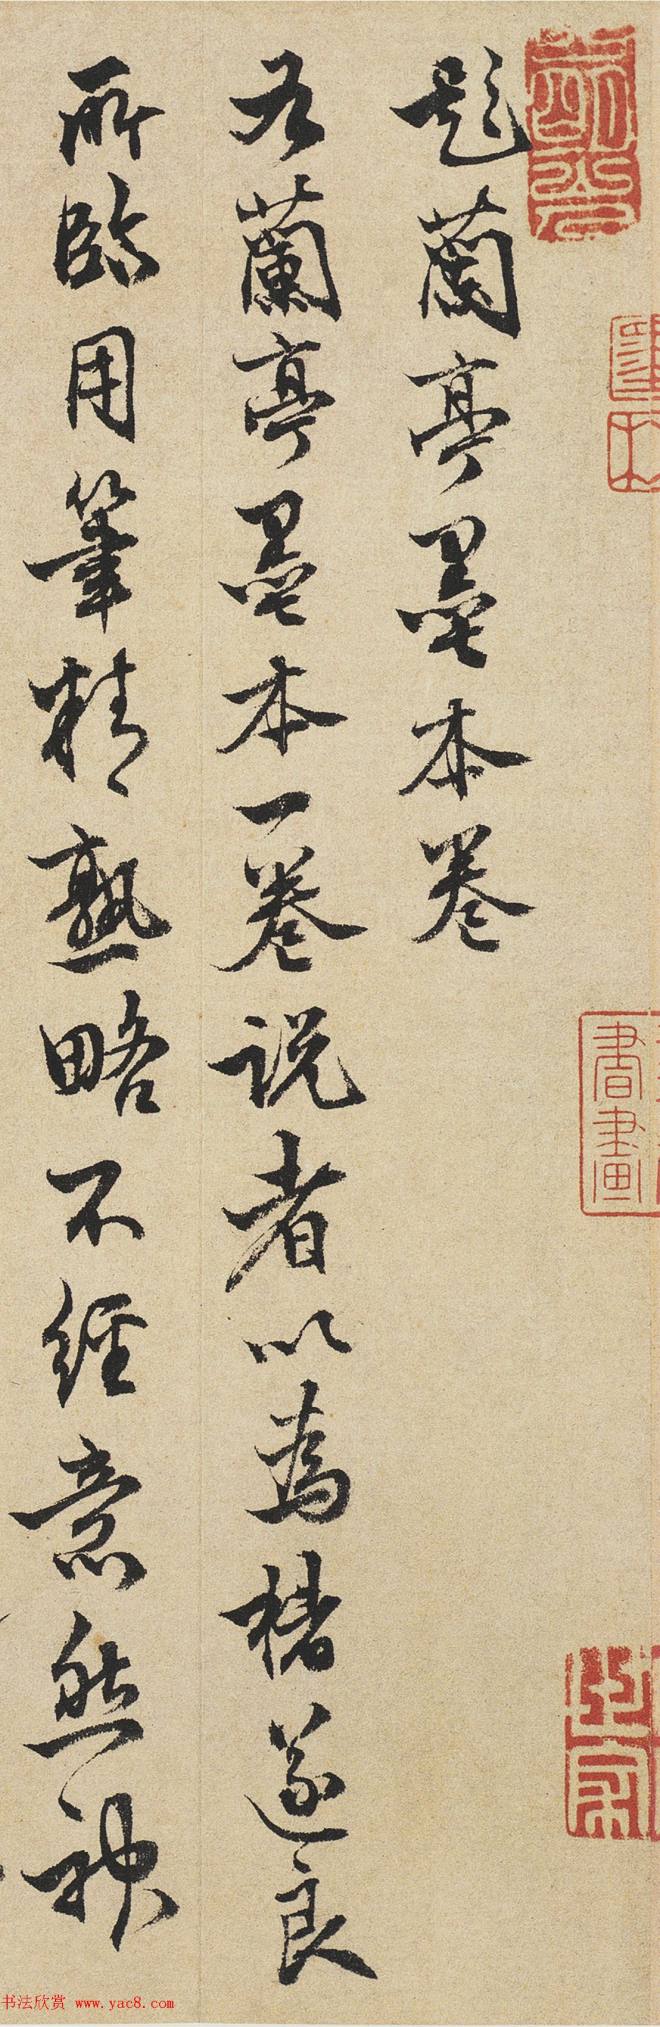 題蘭亭墨本卷
右蘭亭墨本一卷説者以為褚遂良
所臨用筆精熟略不經意然神
書畫
书法欣赏 www.yac8.com